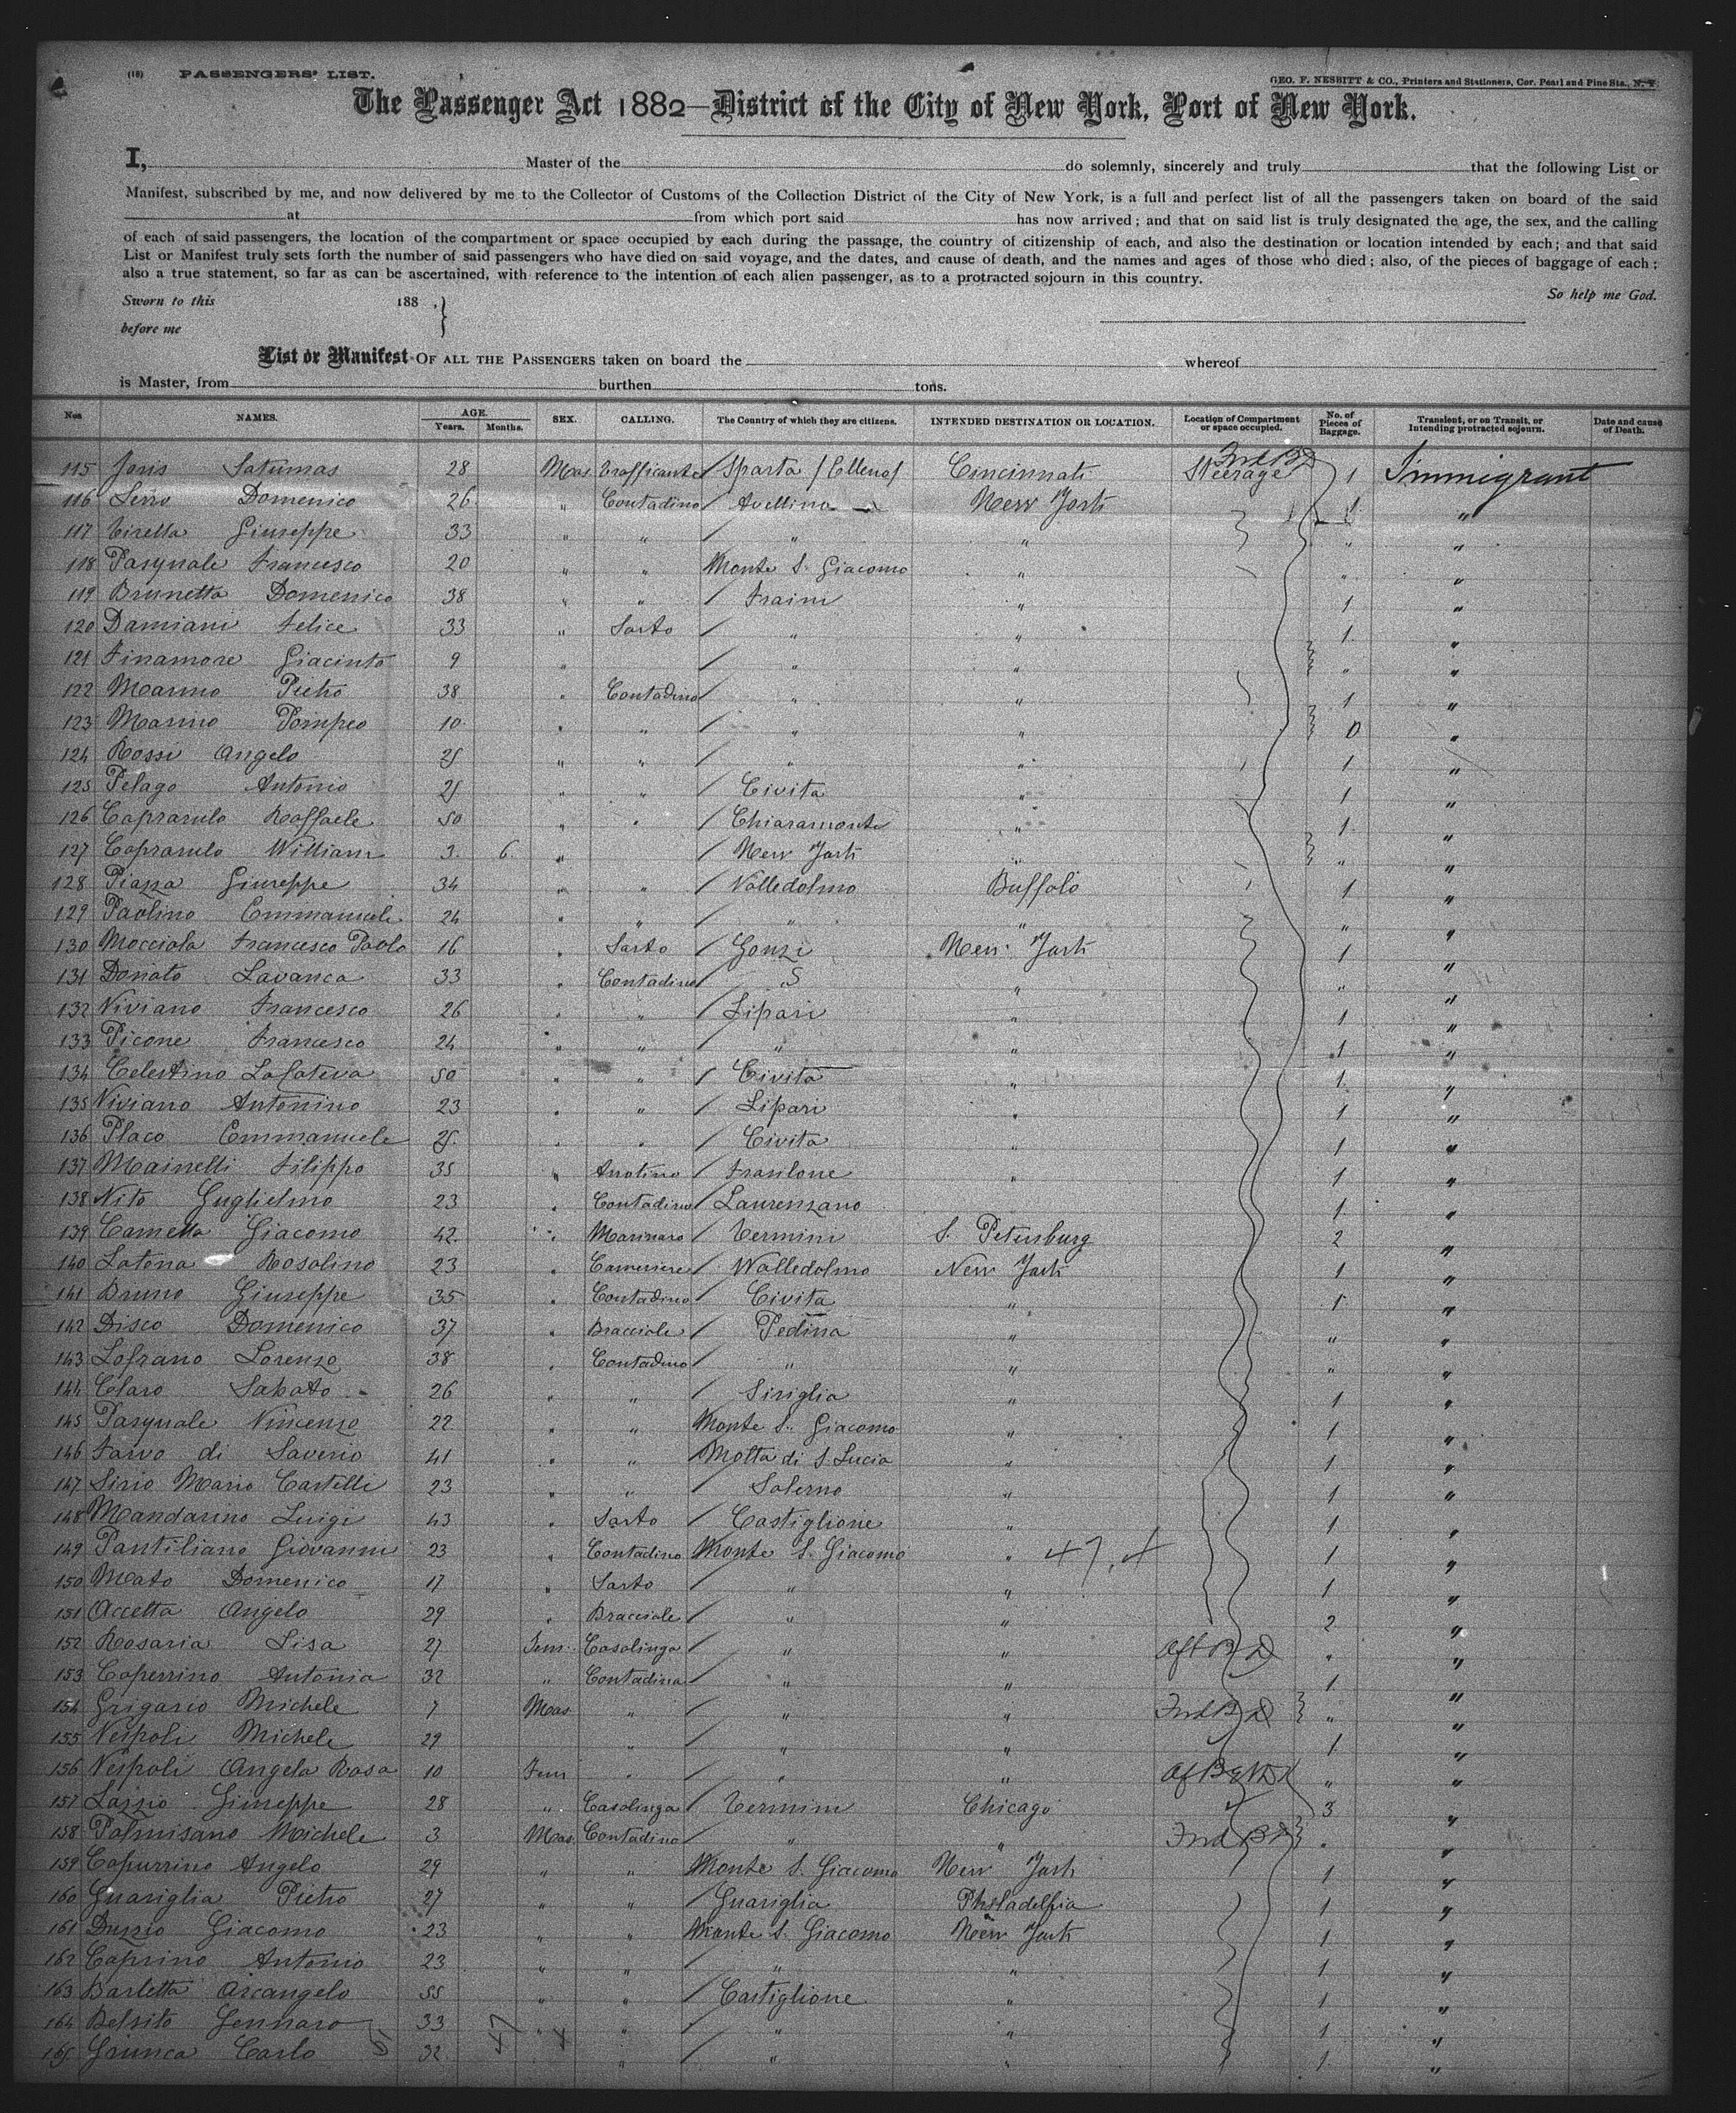 (18) PASSENGERS' LIST.
GEO. F. NESBITT & CO., Printers and Stationers, Cor. Pearl and Pine Sts., N. Y.
The Passenger Act 1882—District of the City of New York, Port of New York.
I, Master of the do solemnly, sincerely and truly that the following List or
Manifest, subscribed by me, and now delivered by me to the Collector of Customs of the Collection District of the City of New York, is a full and perfect list of all the passengers taken on board of the said
at from which port said has now arrived; and that on said list is truly designated the age, the sex, and the calling
of each of said passengers, the location of the compartment or space occupied by each during the passage, the country of citizenship of each, and also the destination or location intended by each; and that said
List or Manifest truly sets forth the number of said passengers who have died on said voyage, and the dates, and cause of death, and the names and ages of those who died; also, of the pieces of baggage of each;
also a true statement, so far as can be ascertained, with reference to the intention of each alien passenger, as to a protracted sojourn in this country.
Sworn to this 188 . } So help me God.
before me
List or Manifest OF ALL THE PASSENGERS taken on board the whereof
is Master, from burthen tons.
Nos NAMES. AGE. Years. Months. SEX. CALLING. The Country of which they are citizens. INTENDED DESTINATION OR LOCATION. Location of Compartment or space occupied. No. of Pieces of Baggage. Transient, or on Transit, or Intending protracted sojourn. Date and cause of Death.
115 28 Mas Trafficante / Sparta Cincinnati Steerage 1 Immigrant
116 Domenico 26 " Contadino / Avellino New York 1 "
117 Tirella Giuseppe 33 " " / " " " "
118 Pasquale Francesco 20 " " Monte S. Giacomo " " "
119 Brunetta Domenico 38 " " / Fraini " 1 "
120 Damiani Felice 33 " Sarto / " " 1 "
121 Finamore Giacinto 9 " / " " " "
122 Marino Pietro 38 " Contadino / " " 1 "
123 Marino Pompeo 10 " " / " " 0 "
124 Rossi Angelo 25 " " / " " 1 "
125 Pelago Antonio 25 " " / Civita " 1 "
126 Raffaele 50 " " / Chiaramonte " 1 "
127 William 3 6 " / New York " " "
128 Piazza Giuseppe 34 " " / Valledolmo Buffalo 1 "
129 Paolino Emmanuele 24 " " / " " " "
130 Mocciola Francesco Paolo 16 " Sarto / New York 1 "
131 Donato Lavanca 33 " Contadino / " " "
132 Viviano Francesco 26 " " / Lipari " 1 "
133 Picone Francesco 24 " " / " " 1 "
134 Celestino 50 " " / Civita " 1 "
135 Viviano Antonino 23 " " / Lipari " 1 "
136 Placo Emmanuele 25 " " / Civita " 1 "
137 Mainelli Filippo 35 " / " 1 "
138 Nito Guglielmo 23 " Contadino / Laurenzano 1 "
139 Giacomo 42 " Marinaro / Termini S. Petersburg 2 "
140 Latona Rosolino 23 " Cameriere / Walledolmo New York 1 "
141 Bruno Giuseppe 35 " Contadino / Civita " 1 "
142 Disco Domenico 37 " Bracciale / Pedina " " "
143 Lofrano Lorenzo 38 " Contadino / " " " "
144 Claro Sabato 26 " " / Siriglia " 1 "
145 Pasquale Vincenzo 22 " " Monte S. Giacomo " 1 "
146 di Saverio 41 " " / Motta di S. Lucia " 1 "
147 Sirio Mario Castelli 23 " " / Salerno " 1 "
148 Mandarino Luigi 43 " Sarto / Castiglione " 1 "
149 Pantiliano Giovanni 23 " Contadino Monte S. Giacomo " 1 "
150 Domenico 17 " Sarto / " " 1 "
151 Accetta Angelo 29 " Bracciale / " " 2 "
152 Rosaria Lisa 27 Fem Casalinga / " " Aft B D " "
153 Caperrino Antonia 32 " Contadina / " " 1 "
154 Michele 7 Mas " / " " Fwd B D " "
155 Nespoli Michele 29 " / " " 1 "
156 Nespoli Angela Rosa 10 Fem " / " " " "
157 Lazzio Giuseppe 28 " Casalinga / Termini Chicago 3 "
158 Palmisano Michele 3 Mas Contadino / " " Fwd B D " "
159 Capurrino Angelo 29 " " Monte S. Giacomo New York 1 "
160 Guariglia Pietro 27 " " / Guariglia Philadelfia 1 "
161 Duzzio Giacomo 23 " " Monte S. Giacomo New York 1 "
162 Caprino Antonio 23 " " / " " 1 "
163 Barletta Arcangelo 55 " " / Castiglione " 1 "
164 Belsito Gennaro 33 " " / " " 1 "
165 Carlo 32 " / " " 1 "